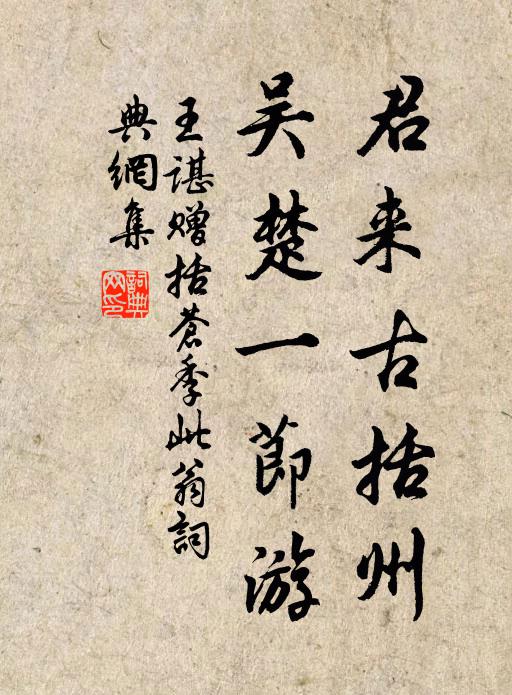 君来古括州
吴楚一節游
王諶赠括蒼季此翁詞
典網集
詞典网印